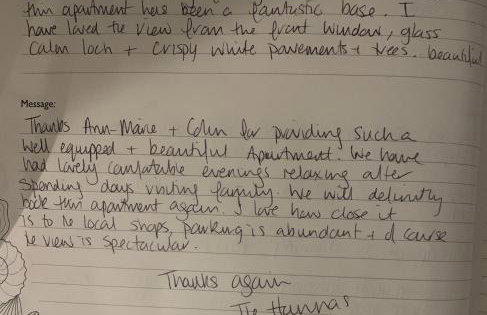 this apartment has been a fantastic base. I
have loved the view from the front window, glass
calm loch + crispy white pavements + trees. beautiful
Message:
Thanks Ann-Marie + Colin for providing such a
well equipped + beautiful Apartment. We have
had lovely comfortable evenings relaxing after
spending days visiting family. We will definitly
book this apartment again. I love how close it
is to the local shops, parking is abundant + of course
the view is spectacular.
Thanks again
The Hannas